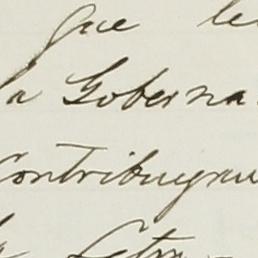 que le
la Goberna
Contribuyan
la Letra